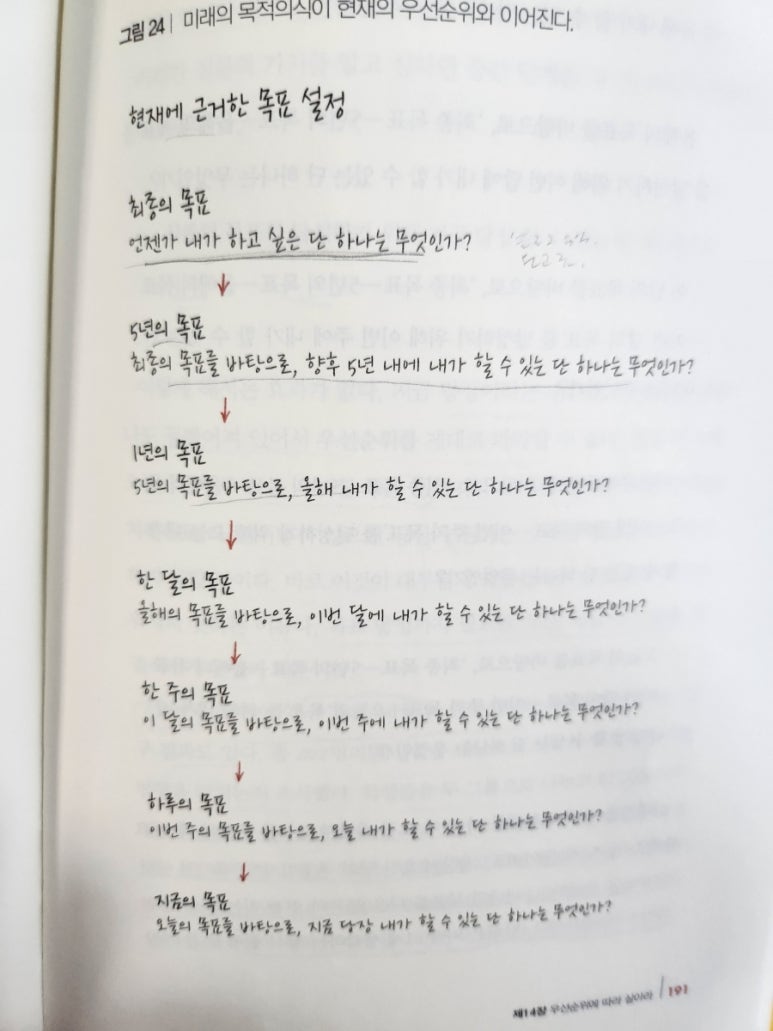 그림 24 | 미래의 목적의식이 현재의 우선순위와 이어진다.
현재에 근거한 목표 설정
최종의 목표
언젠가 내가 하고 싶은 단 하나는 무엇인가?
5년의 목표
최종의 목표를 바탕으로, 향후 5년 내에 내가 할 수 있는 단 하나는 무엇인가?
1년의 목표
5년의 목표를 바탕으로, 올해 내가 할 수 있는 단 하나는 무엇인가?
한 달의 목표
올해의 목표를 바탕으로, 이번 달에 내가 할 수 있는 단 하나는 무엇인가?
한 주의 목표
이 달의 목표를 바탕으로, 이번 주에 내가 할 수 있는 단 하나는 무엇인가?
하루의 목표
이번 주의 목표를 바탕으로, 오늘 내가 할 수 있는 단 하나는 무엇인가?
지금의 목표
오늘의 목표를 바탕으로, 지금 당장 내가 할 수 있는 단 하나는 무엇인가?
제14장 우선순위에 따라 살아라 | 191